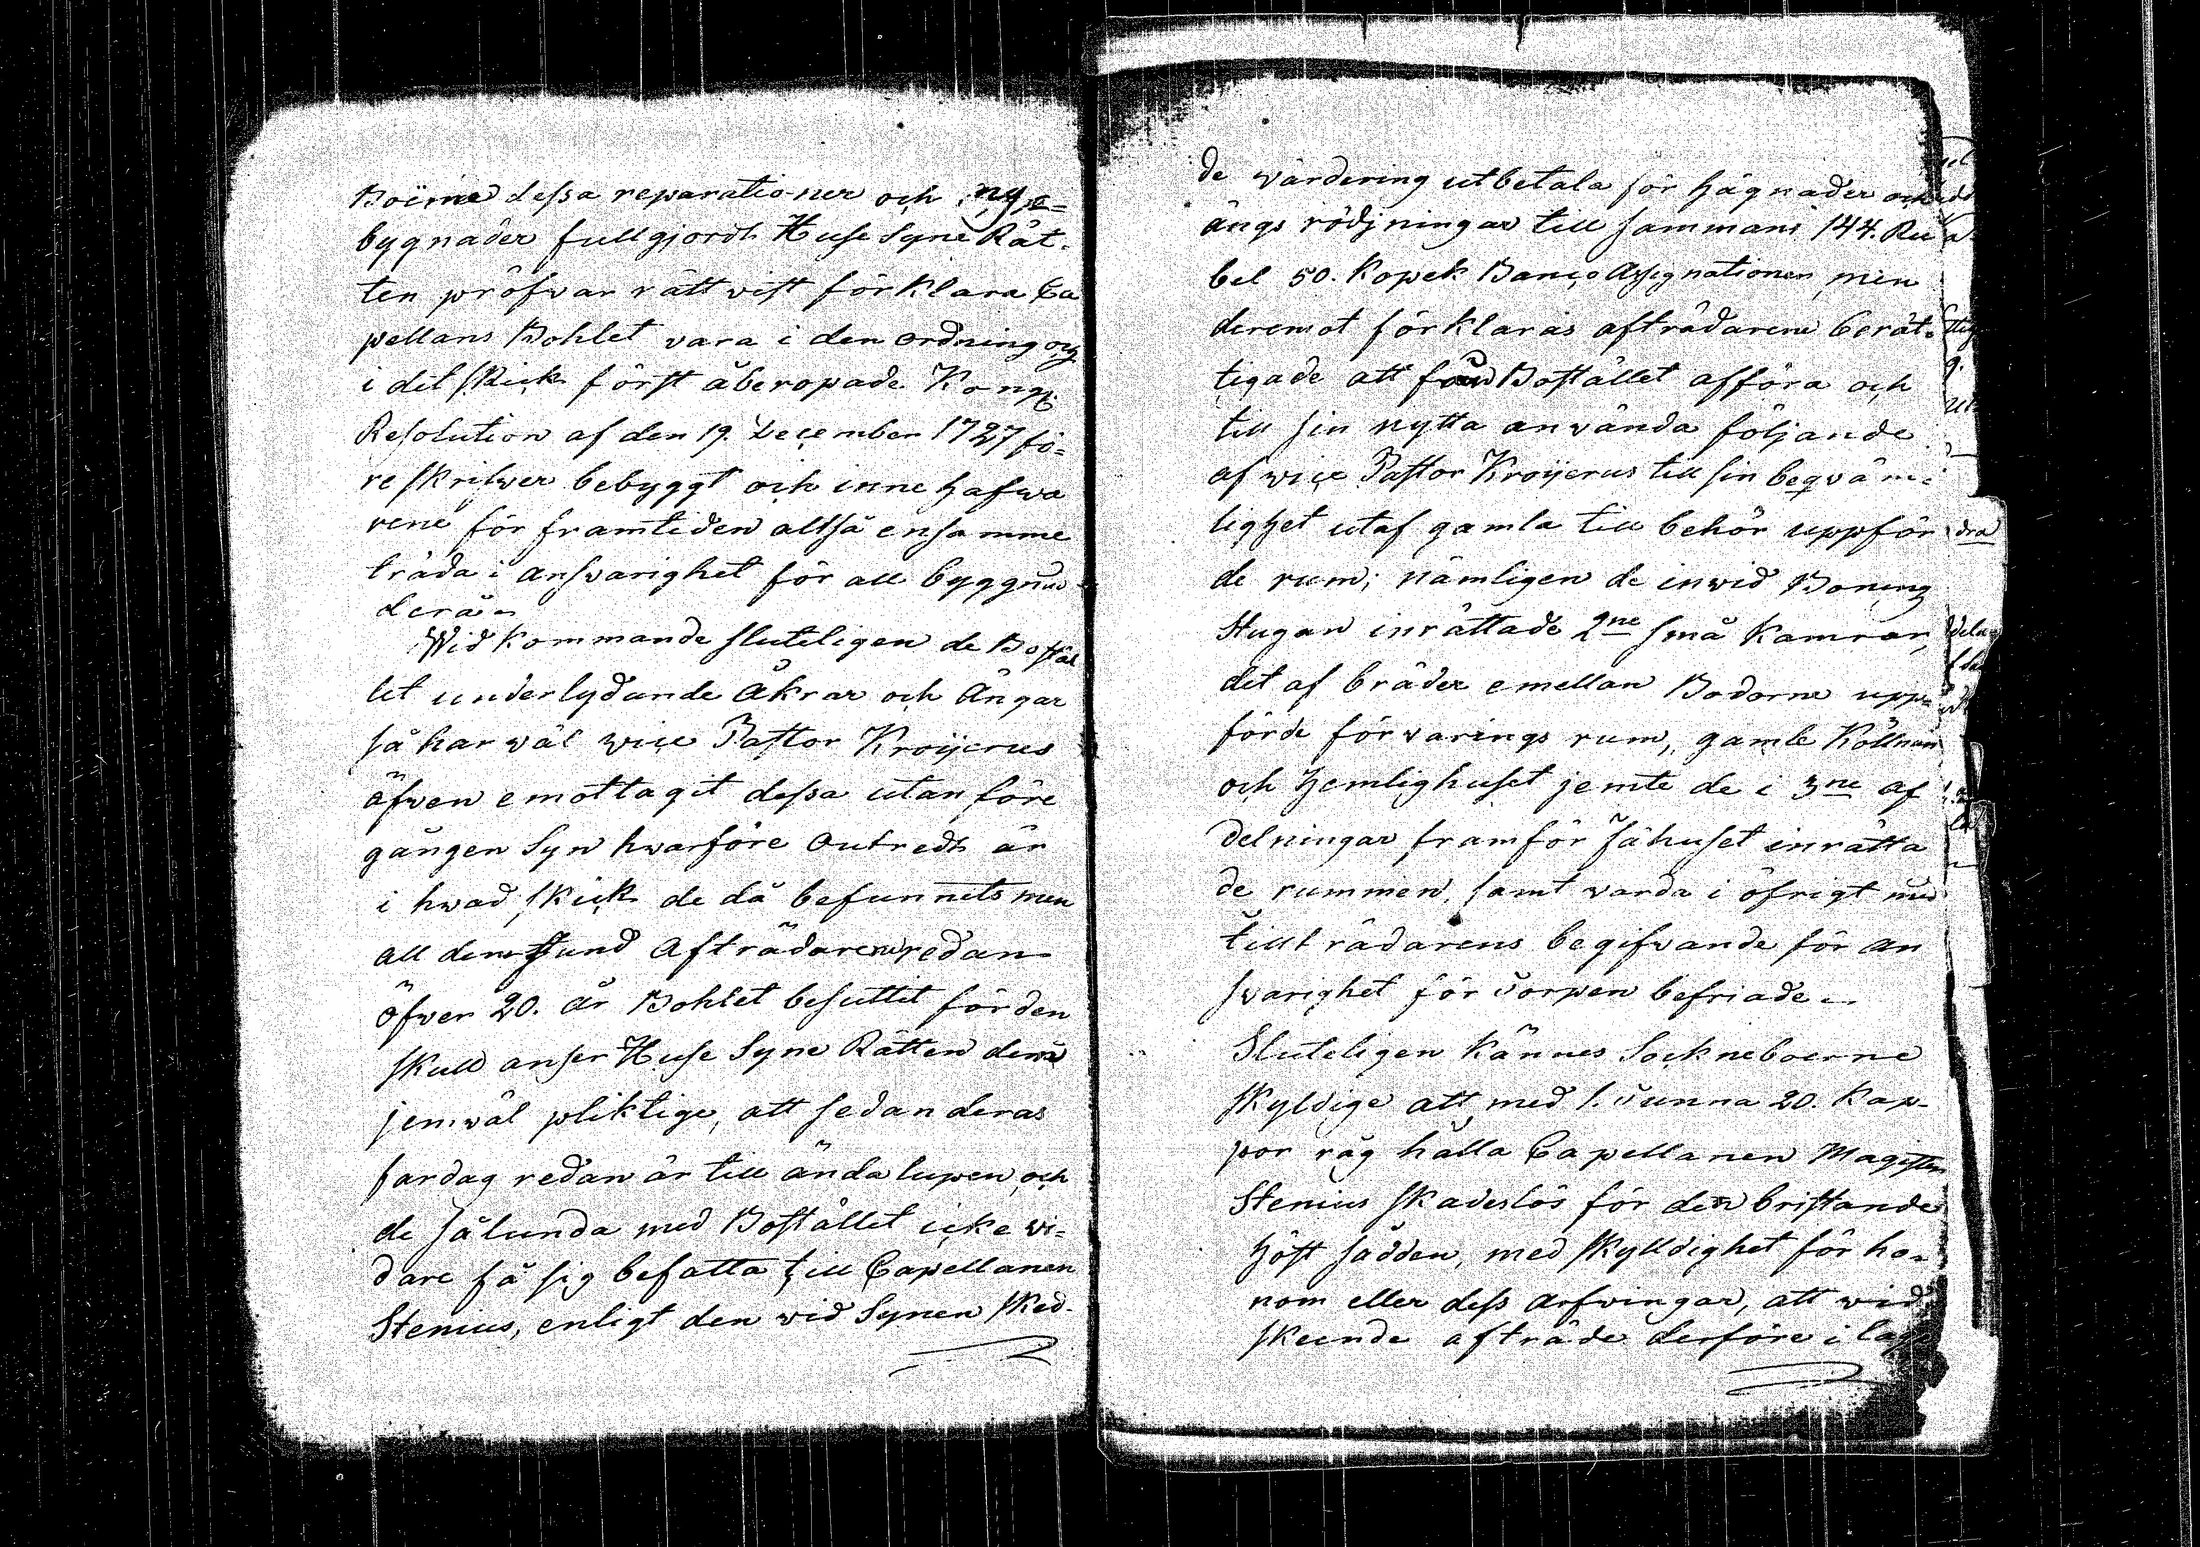 Boërne dessa reparationer och nye=
bygnader fullgjordt Huse Syne Rät-
ten pröfvar rättvist förklara Ca
pellans Bohlet vara i den ordning och
i det skick först åberopade Kongl.
Resolution af den 19. December 1727 fö=
reskrifwer bebyggt och innehafwa
rene för framtiden altså ensamme
träda i answarighet för all byggnad
derå
Widkommande sluteligen de Bostäl
let underlydande Åkrar och Ängar
så har wäl wice Pastor Kroijerus
äfwen emottagit dessa utan före
gången Syn hwarföre outredt är
i hwad skick de då befunnits men
all den stund Afträdarene redan
öfver 20. år Bohlet besuttit för den
skull anser Huse Syne Rätten dem
jemwäl pliktige, att sedan deras
fardag redan är till ända lupen, och
de sålunda med Bostället icke wi=
dare få sig befatta till Capellanen
Stenius, enligt den wid Synen sked-
de värdering utbetala för hägnader och
ängs rödjningar till sammans 144. Ru
bel 50. Kopek Banco Assignationer, men
deremot förklaras afträdarene berät-
tigade att från Bostället afföra och
till sin nytta använda följande
af wice Pastor Kroijerus till sin beqväm-
lighet utaf gamla till behör uppför
de rum; nämligen de inwid Boning
Stugan inrättade 2ne små Kamrar,
det af bräder emellan Bodorne upp=
förde förvarings rum, gamle Köllnan
och Hemlighuset jemte de i 3ne af
delningar framför Fähuset inrätta
de rummen, samt varda i öfrigt med
tillträdarens begifvande för an
svarighet för Torpen befriade.
Sluteligen kännes Sockneboerne
skyldige att med 1. Tunna 20. Kap-
por råg hålla Capellanen Magister
Stenius skadeslös för den bristande
Höst sädden, med skylldighet för ho-
nom eller dess arfvingar, att wid
skeende afträde derföre i